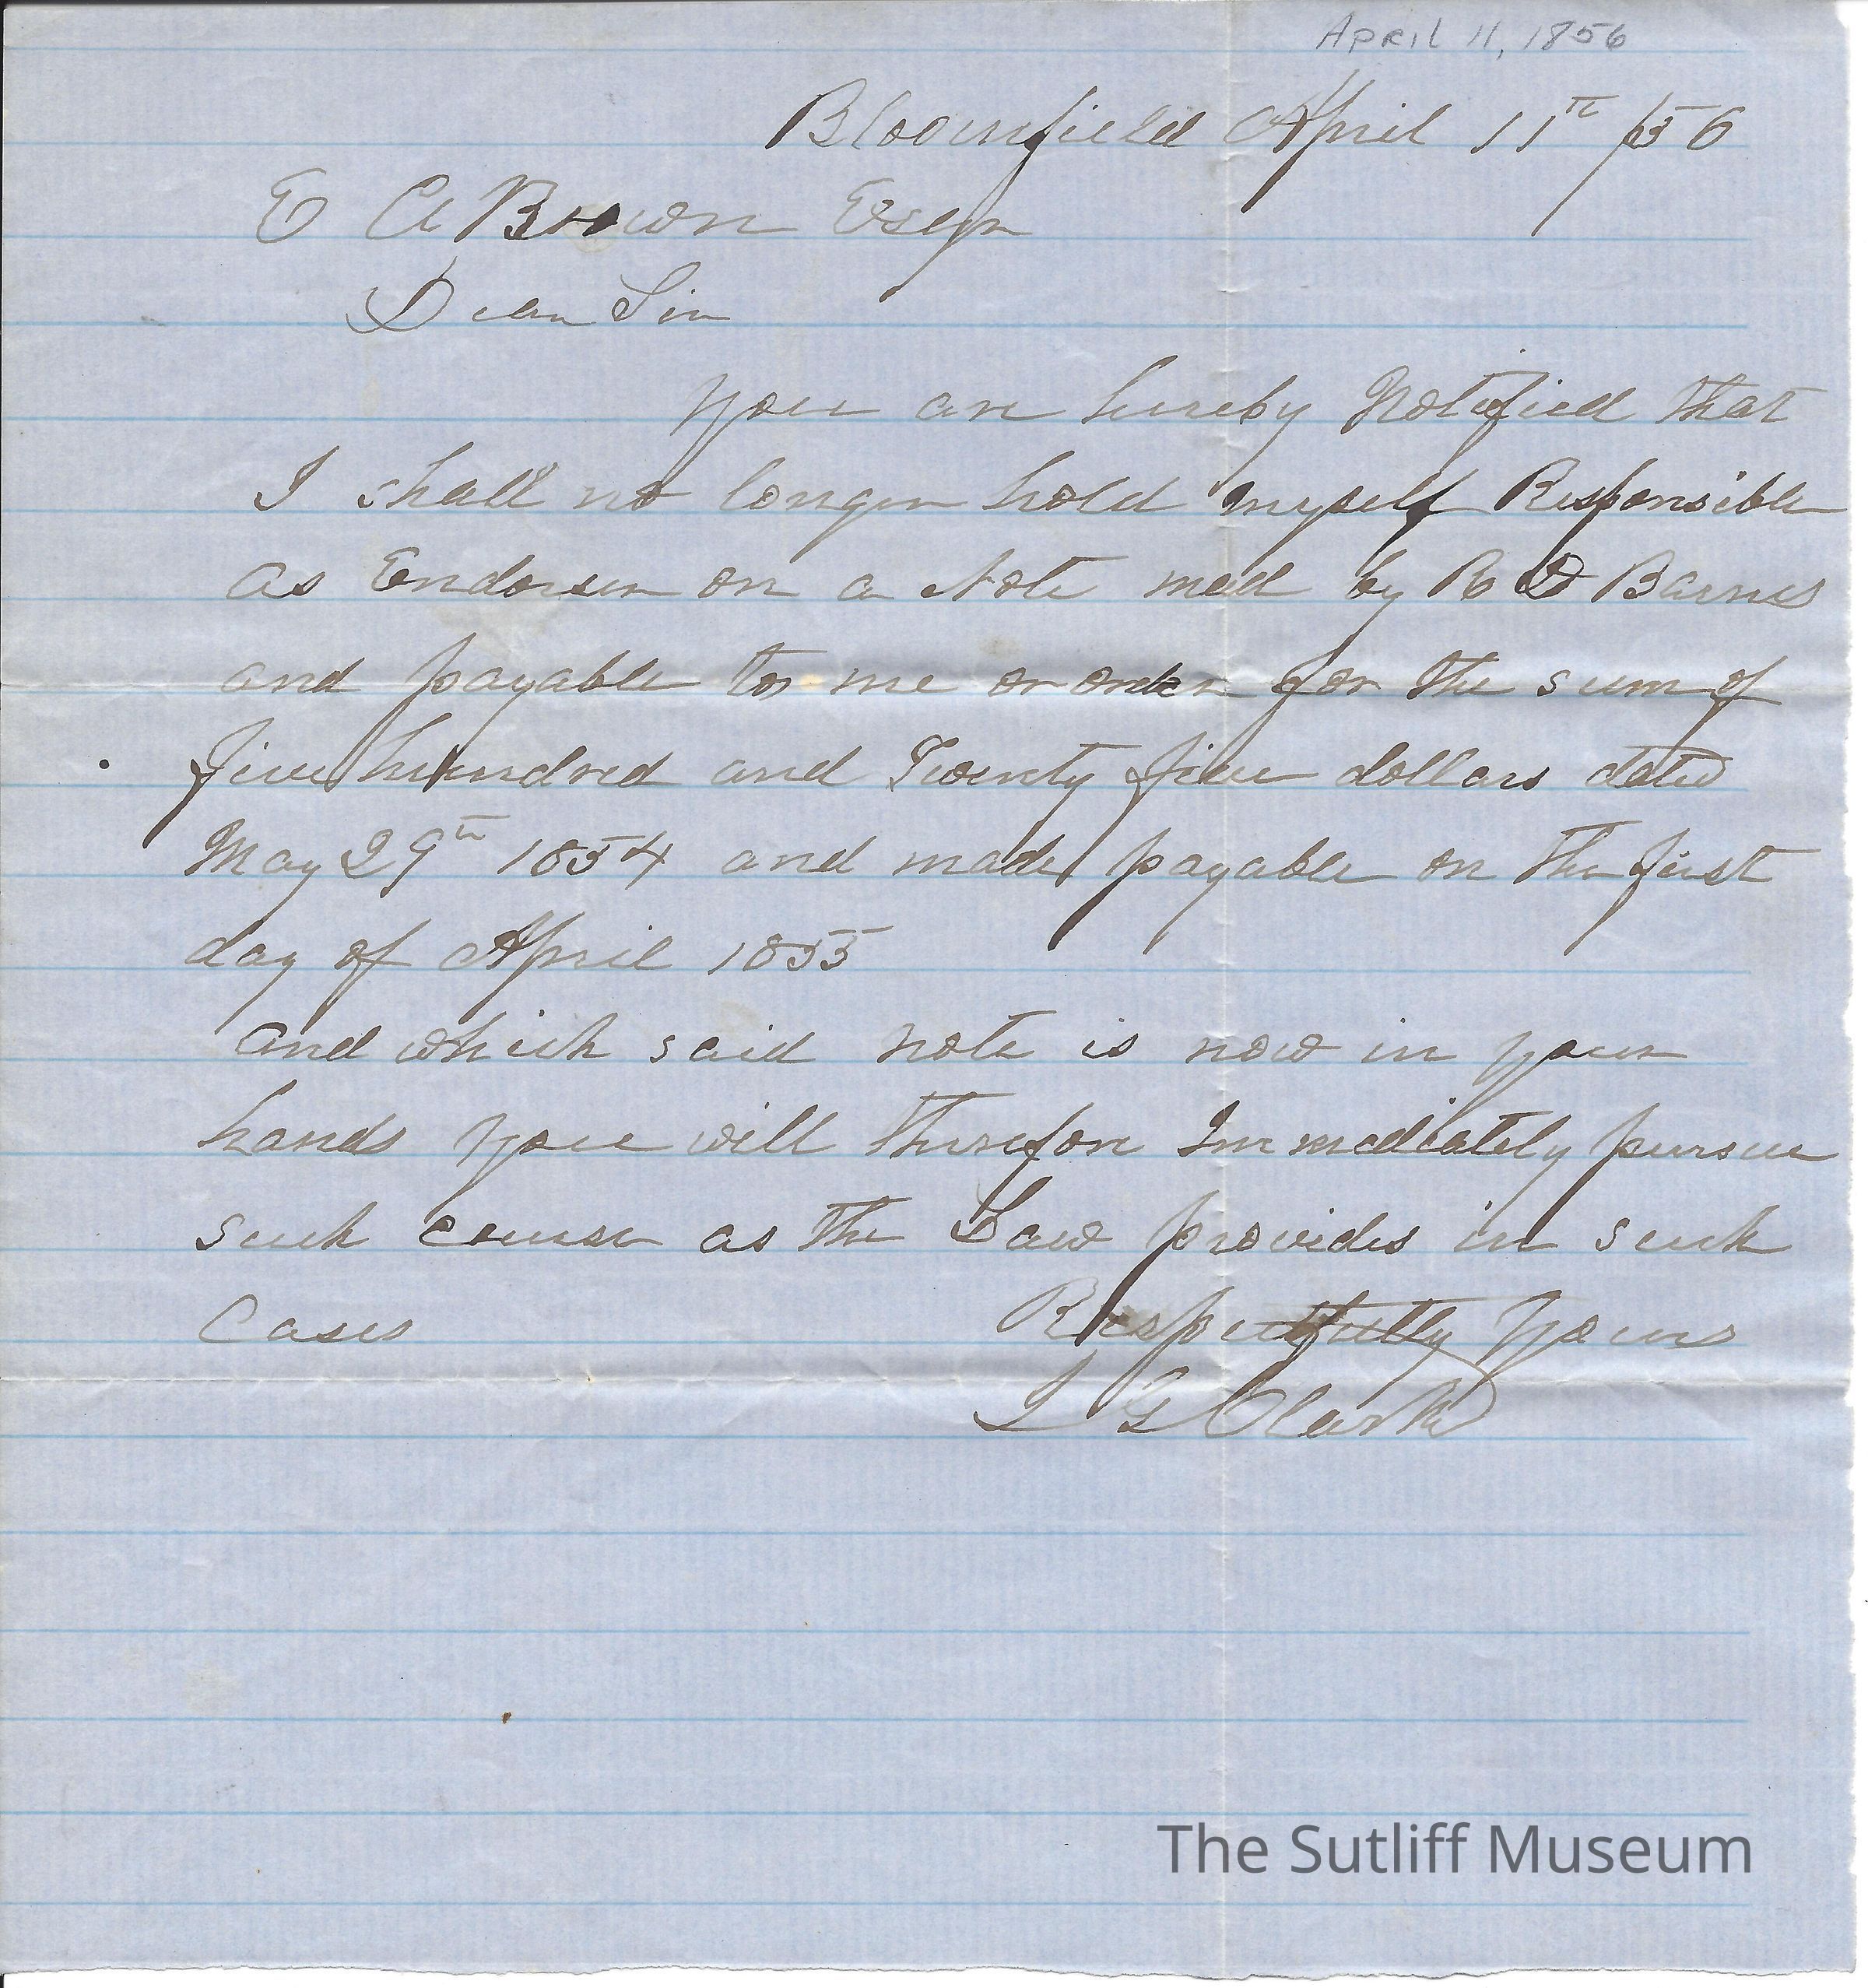 April 11, 1856
Bloomfield April 11th /56
E A Brown Esqr
Dear Sir
you are hereby Notified that
I shall no longer hold myself Responsible
as Endorser on a Note mad by R D Barnes
and payable to me or order for the sum of
five hundred and Twenty five dollars dated
May 29th 1854 and made payable on the first
day of April 1855
and which said note is now in your
hands you will therefore Immediately pursue
such course as the Law provides in such
Cases Respectfully Yours
L G Clark
The Sutliff Museum